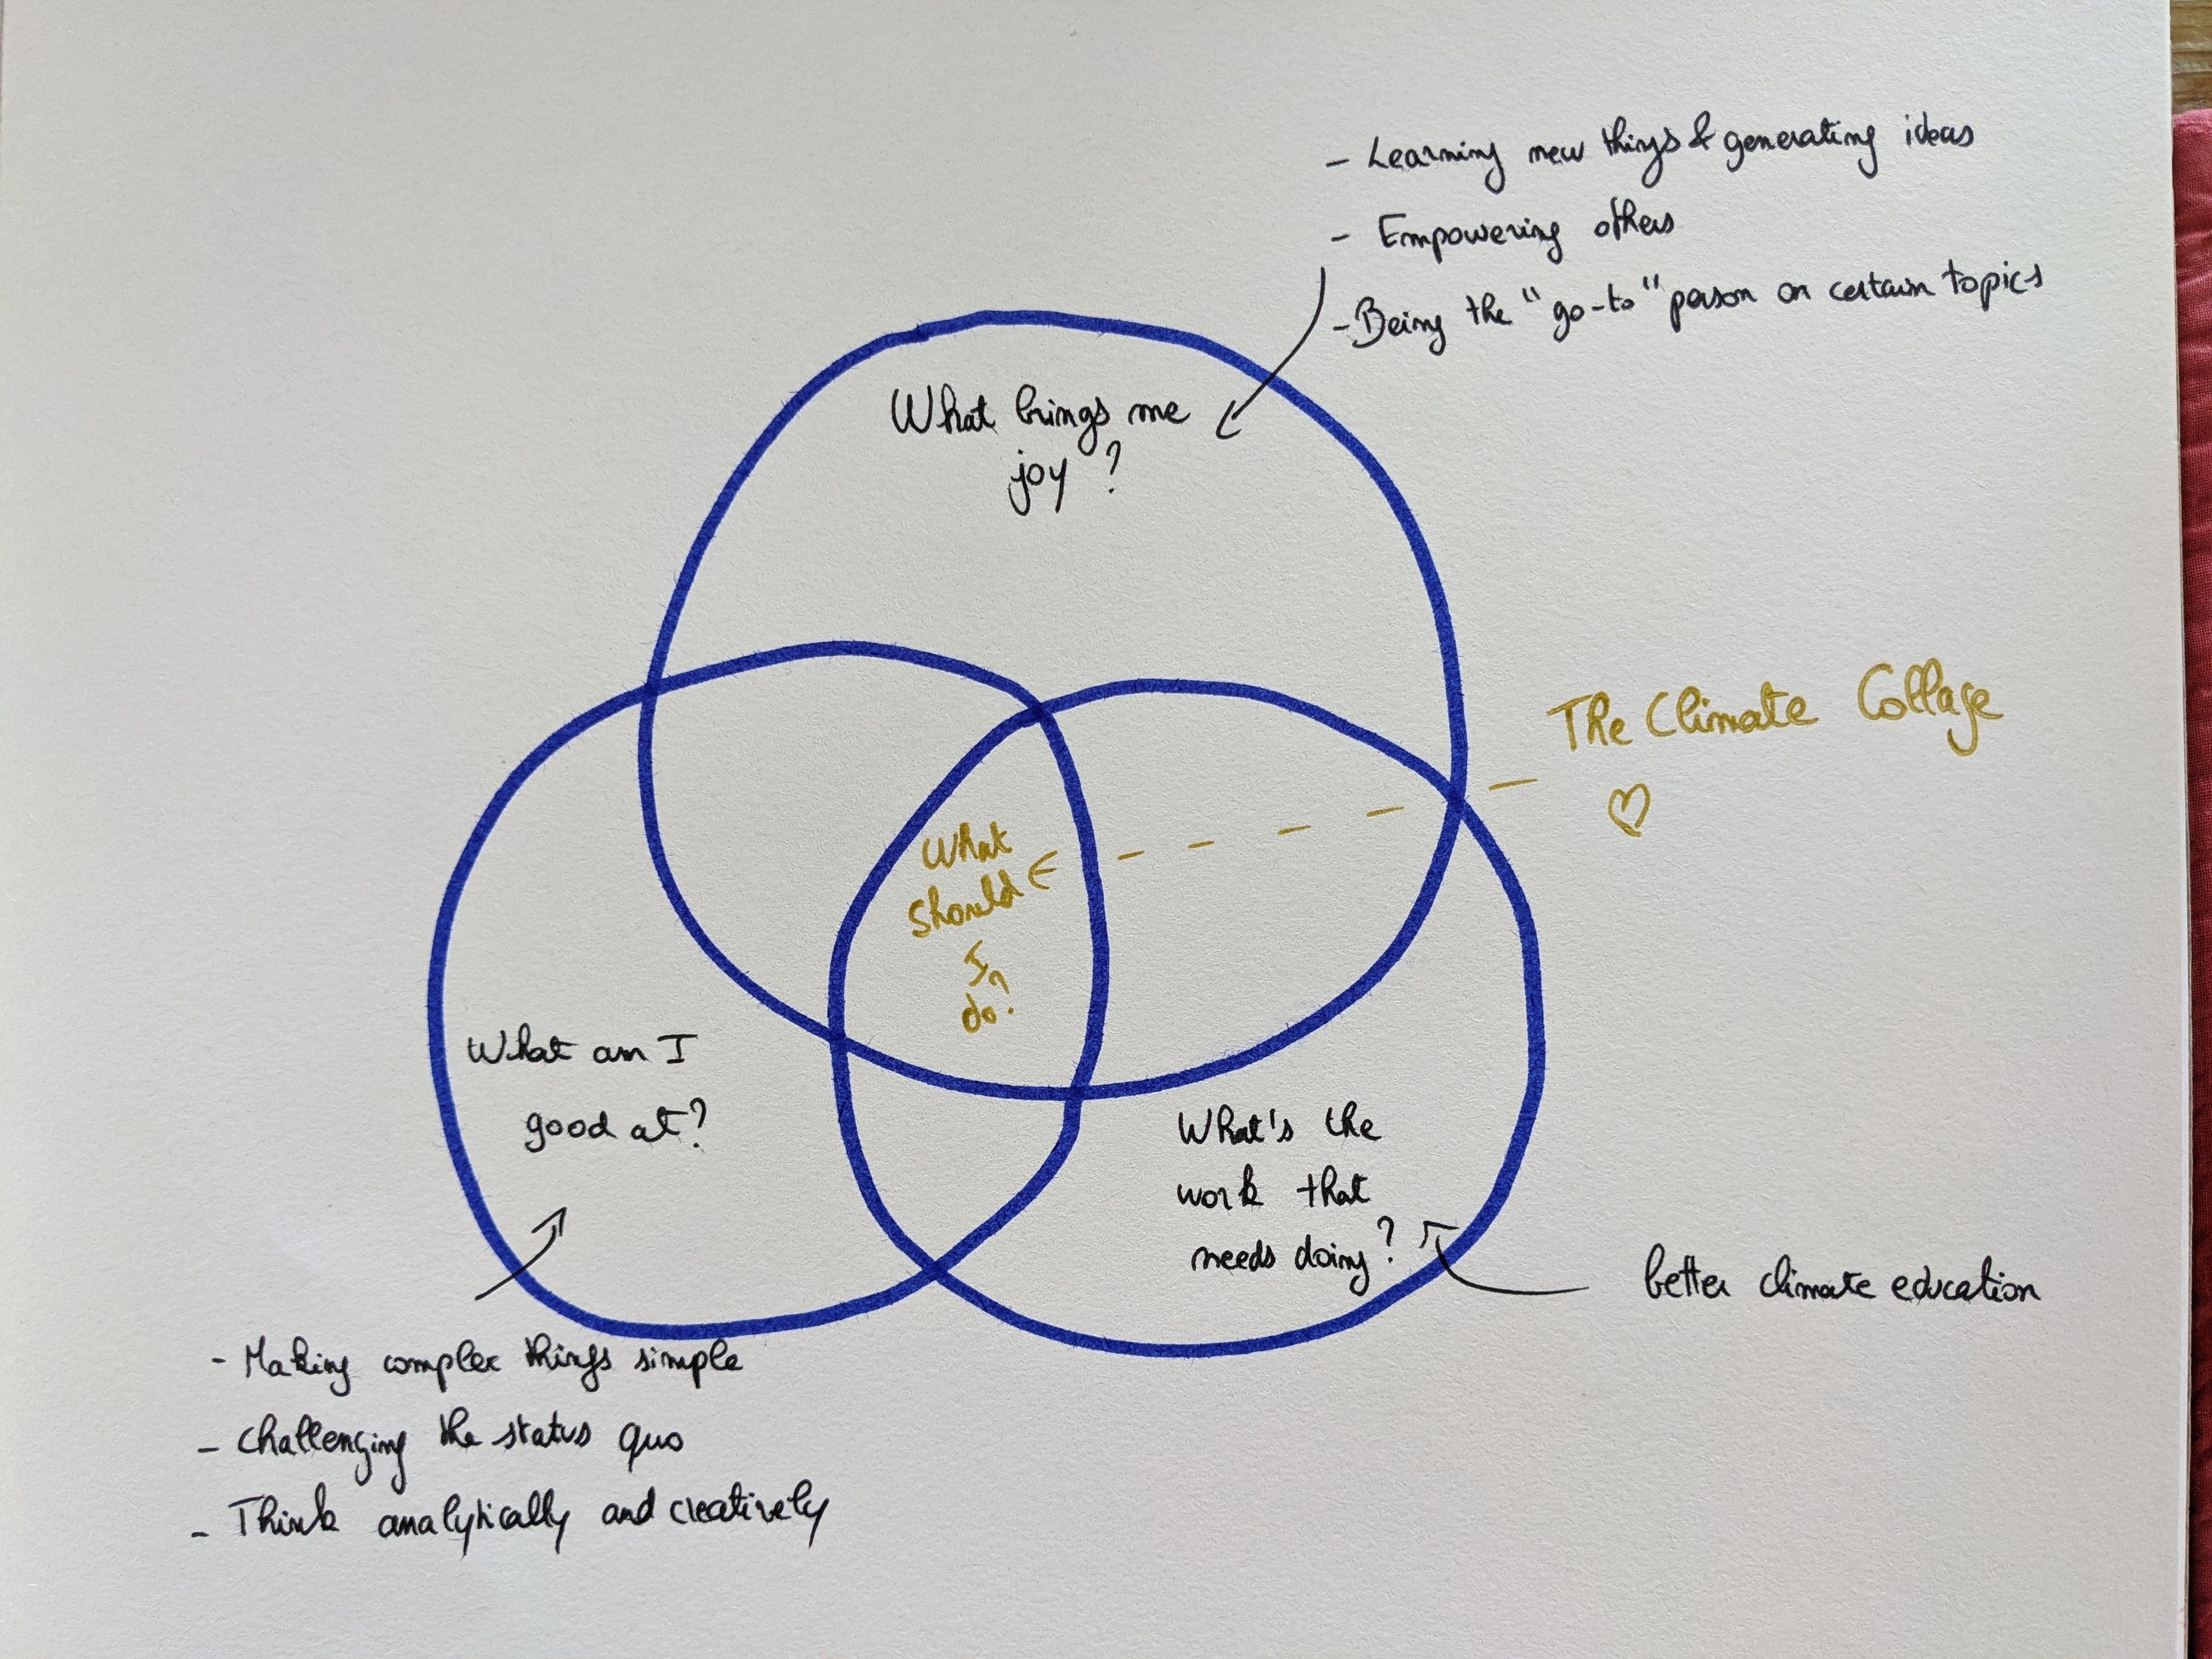 - Learning new things & generating ideas
- Empowering others
- Being the "go-to" person on certain topics
What brings me
joy?
The Climate Collage
♡
What
should
I
do?
What am I
good at?
What's the
work that
needs doing?
better climate education
- Making complex things simple
- Challenging the status quo
- Think analytically and creatively